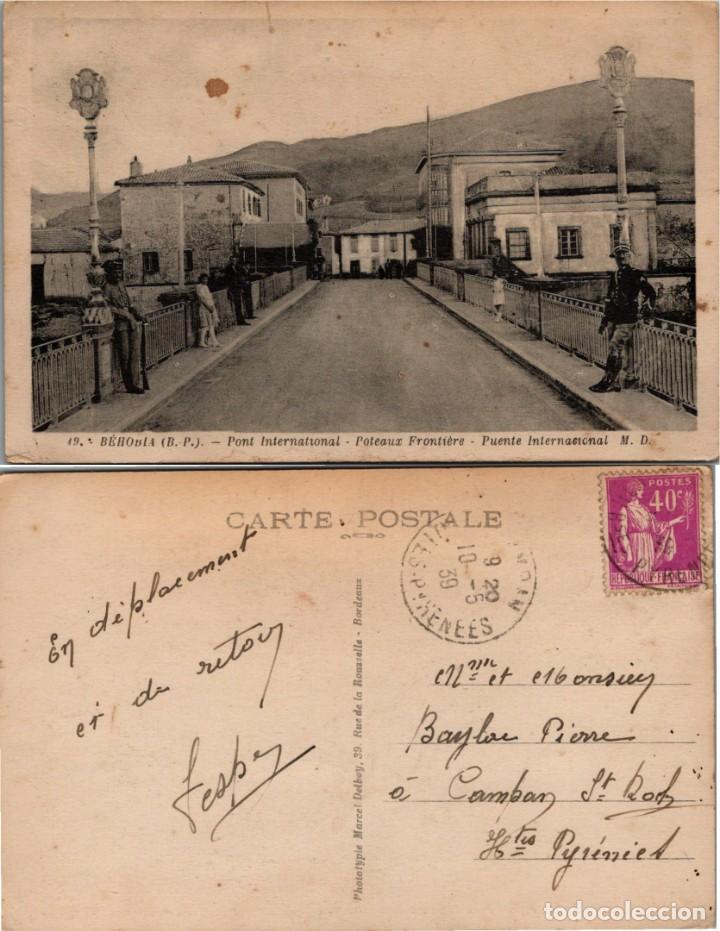 19. - BÉHOBIA (B.-P.). - Pont International - Poteaux Frontière - Puente Internacional M. D.
CARTE POSTALE
POSTES
40c
RÉPUBLIQUE FRANÇAISE
9 20
10-5
39
TES-PYRENEES
En déplacement
et de retour
Mme et Monsieur
Baylac Pierre
à Campan St Roch
Htes Pyréniet
Phototypie Marcel Delboy, 39, Rue de la Rousselle - Bordeaux
todocoleccion
todocoleccion